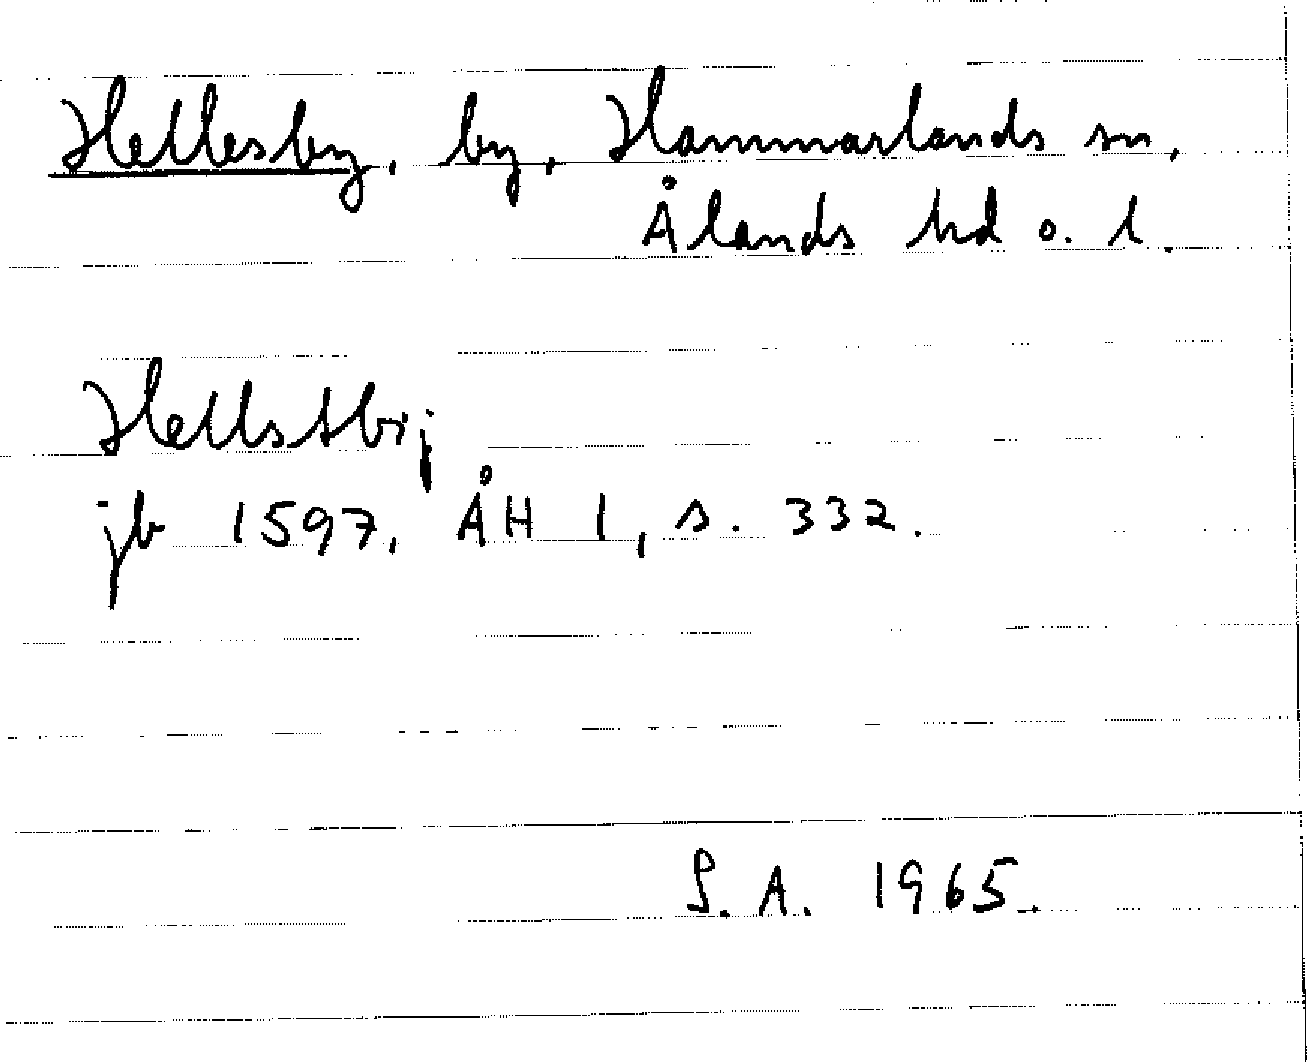 Hellesby, by, Hammarlands sn,
Ålands hd o. l.
Hellstbij
jb 1597, ÅH 1, s. 332.
S. A. 1965.